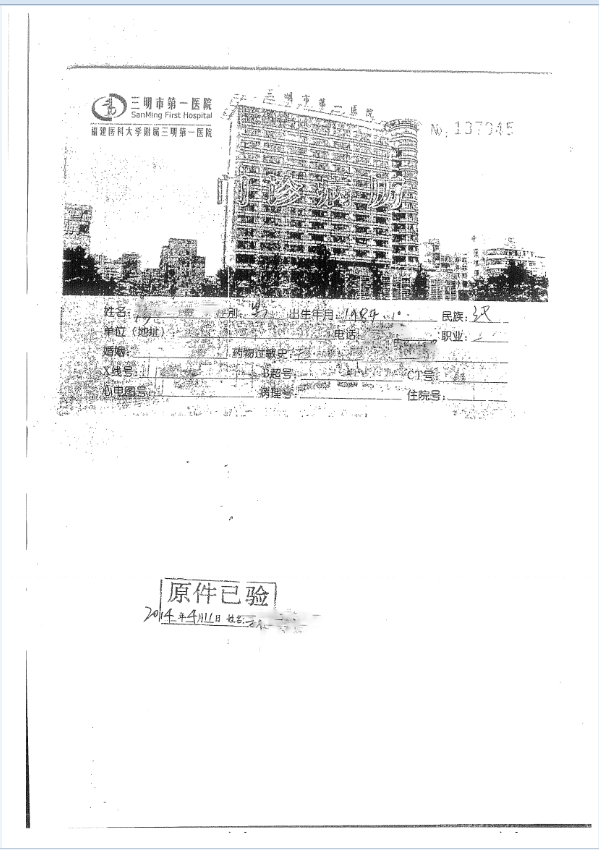 三明市第一医院
SanMing First Hospital
福建医科大学附属三明第一医院
三明市第一医院
No. 137945
门诊病历
姓名: 别: 男 出生年月: 1984.10 民族: 汉
单位(地址) 电话 职业:
婚姻: 药物过敏史:
X线号: B超号: CT号:
心电图号: 病理号: 住院号:
原件已验
2014年4月11日 姓名: